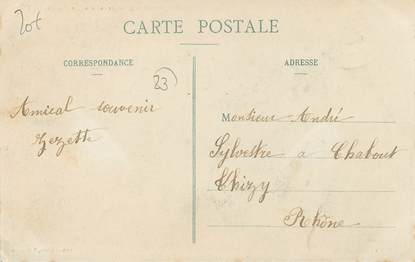 Lot
CARTE POSTALE
CORRESPONDANCE
ADRESSE
23
Amical souvenir
Zezette
Monsieur André
Sylvestre a Chabout
Thizy
Rhône